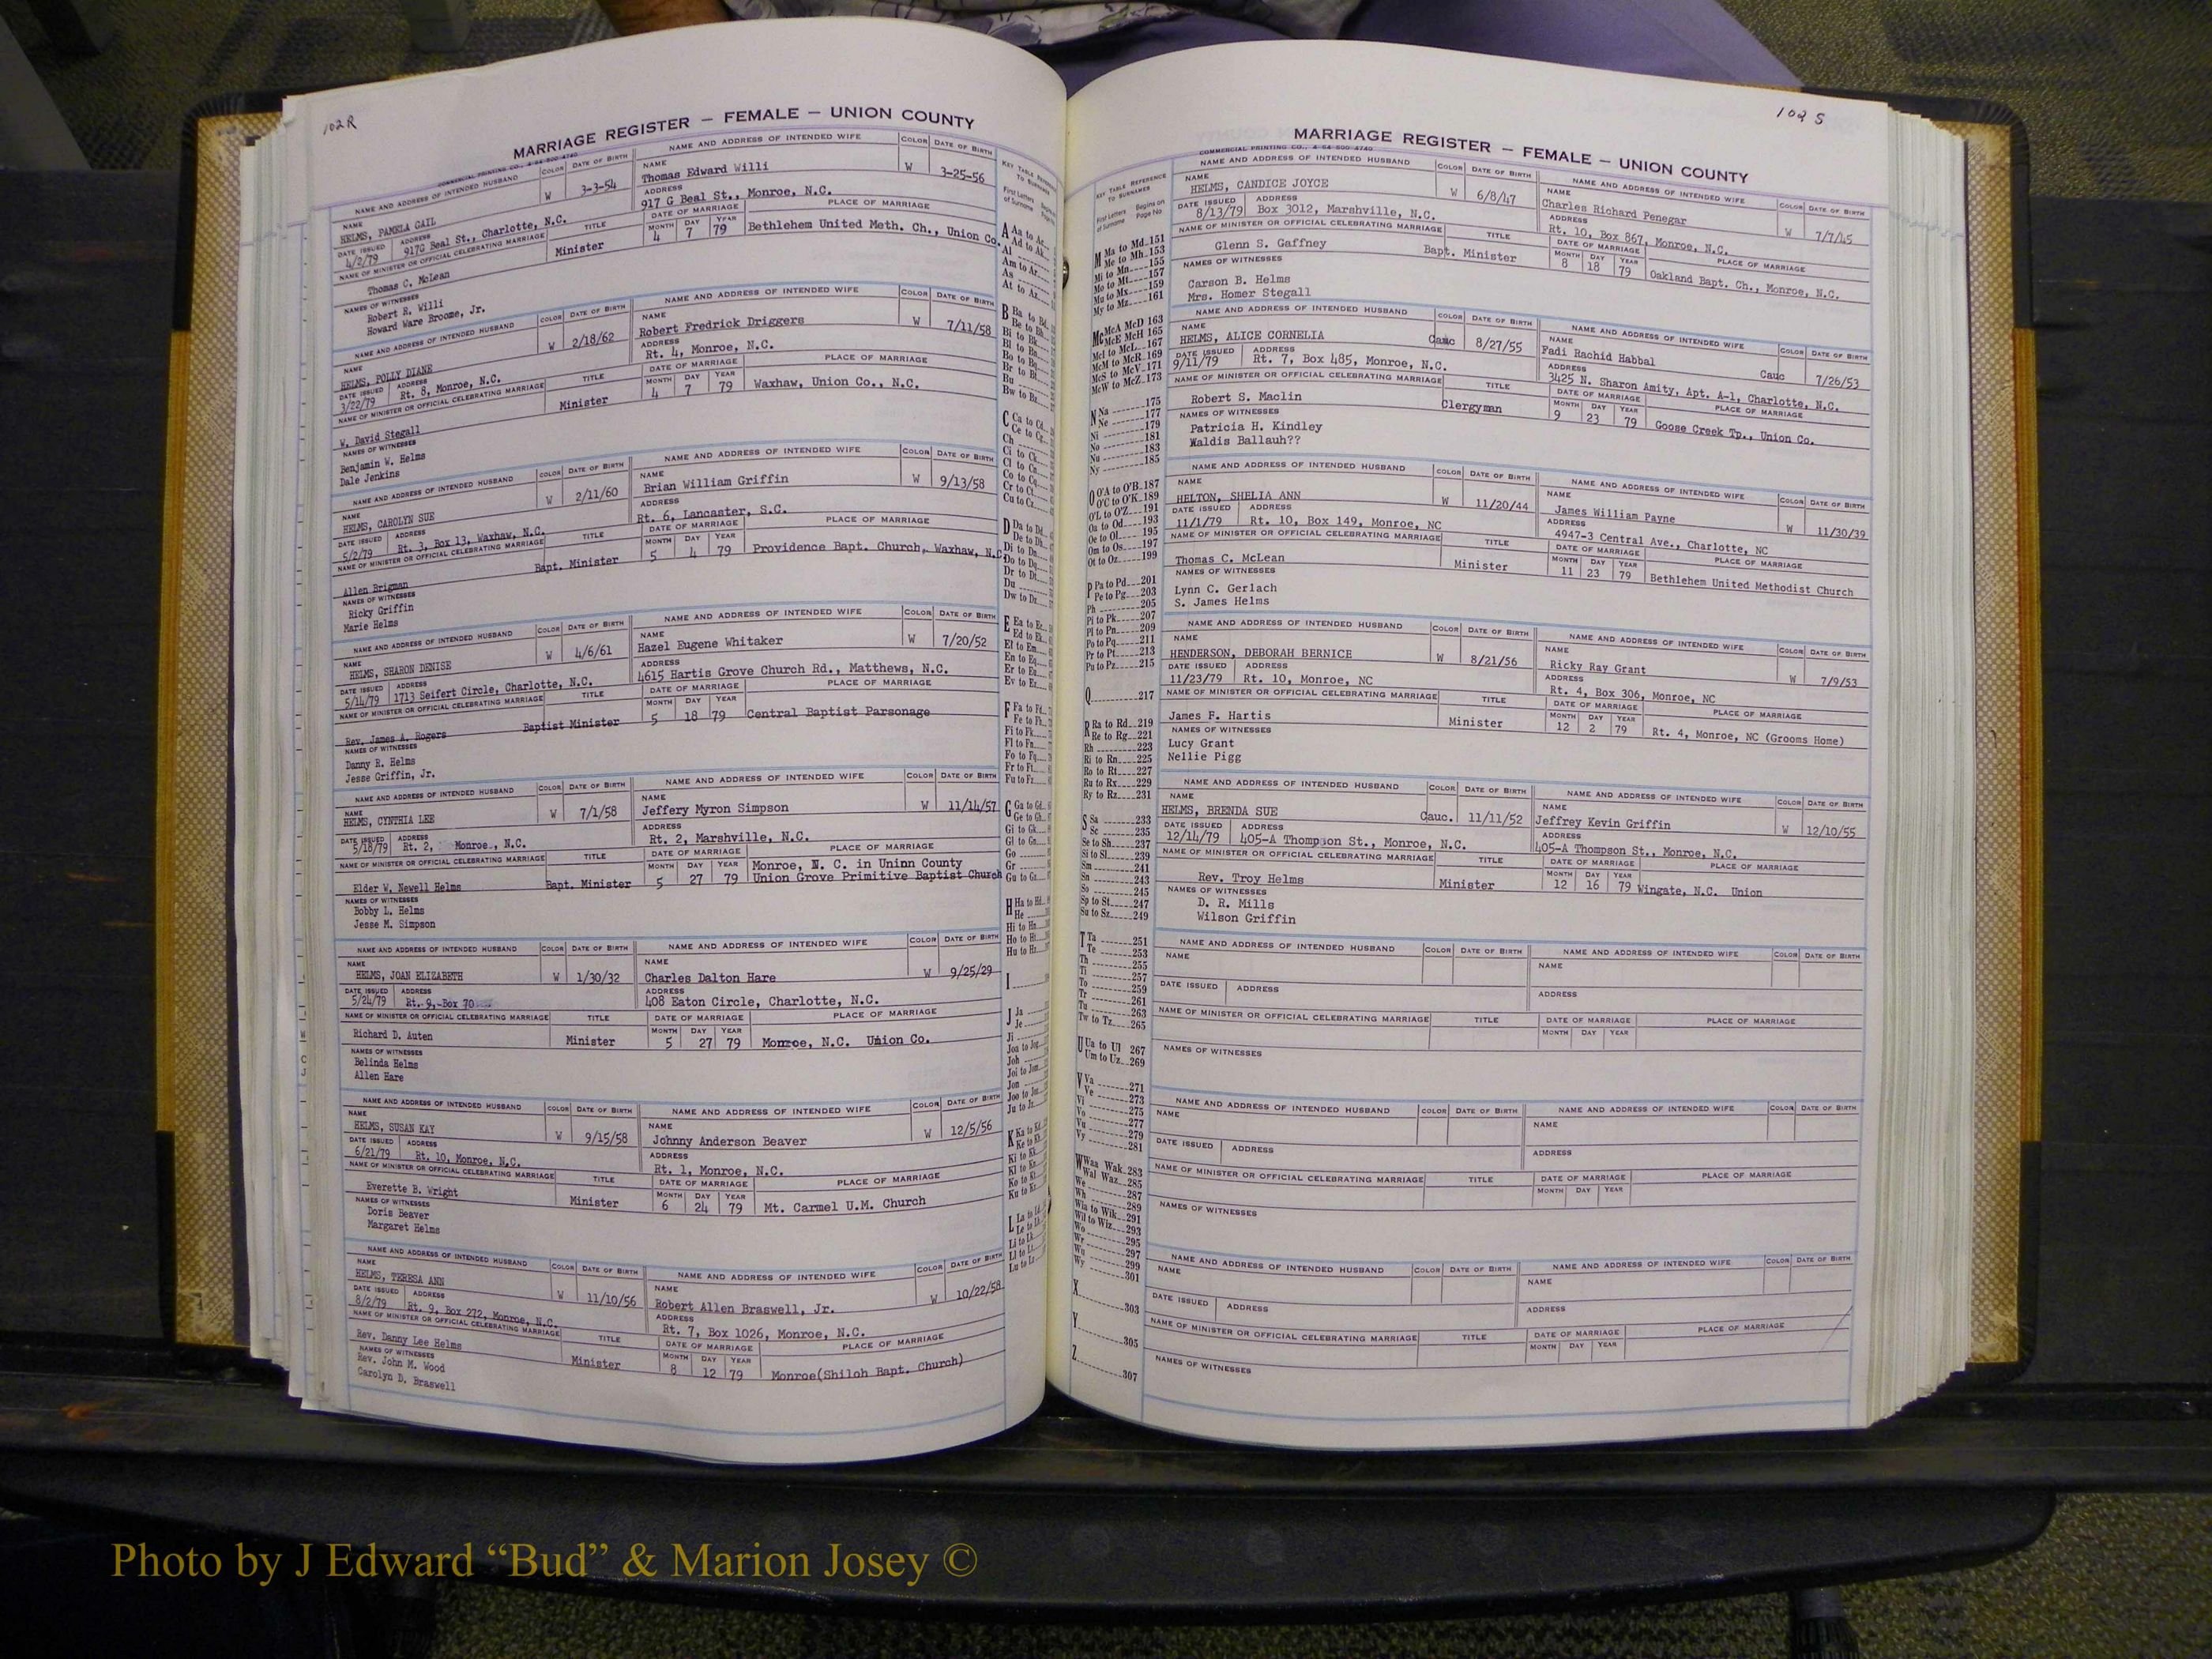 102R
MARRIAGE REGISTER — FEMALE — UNION COUNTY
COMMERCIAL PRINTING CO., 4-64-500-4740
NAME AND ADDRESS OF INTENDED HUSBAND COLOR DATE OF BIRTH NAME AND ADDRESS OF INTENDED WIFE COLOR DATE OF BIRTH
NAME HELMS, PAMELA GAIL W 3-3-54 NAME Thomas Edward Willi W 3-25-56
DATE ISSUED 4/2/79 ADDRESS 917G Beal St., Charlotte, N.C. ADDRESS 917 G Beal St., Monroe, N.C.
NAME OF MINISTER OR OFFICIAL CELEBRATING MARRIAGE TITLE DATE OF MARRIAGE PLACE OF MARRIAGE
Thomas C. McLean Minister MONTH 4 DAY 7 YEAR 79 Bethlehem United Meth. Ch., Union Co.
NAMES OF WITNESSES
Robert R. Willi
Howard Ware Broome, Jr.
NAME AND ADDRESS OF INTENDED HUSBAND COLOR DATE OF BIRTH NAME AND ADDRESS OF INTENDED WIFE COLOR DATE OF BIRTH
NAME HELMS, POLLY DIANE W 2/18/62 NAME Robert Fredrick Driggers W 7/11/58
DATE ISSUED 3/22/79 ADDRESS Rt. 8, Monroe, N.C. ADDRESS Rt. 4, Monroe, N.C.
NAME OF MINISTER OR OFFICIAL CELEBRATING MARRIAGE TITLE DATE OF MARRIAGE PLACE OF MARRIAGE
W. David Stegall Minister MONTH 4 DAY 7 YEAR 79 Waxhaw, Union Co., N.C.
NAMES OF WITNESSES
Benjamin W. Helms
Dale Jenkins
NAME AND ADDRESS OF INTENDED HUSBAND COLOR DATE OF BIRTH NAME AND ADDRESS OF INTENDED WIFE COLOR DATE OF BIRTH
NAME HELMS, CAROLYN SUE W 2/11/60 NAME Brian William Griffin W 9/13/58
DATE ISSUED 5/2/79 ADDRESS Rt. 3, Box 13, Waxhaw, N.C. ADDRESS Rt. 6, Lancaster, S.C.
NAME OF MINISTER OR OFFICIAL CELEBRATING MARRIAGE TITLE DATE OF MARRIAGE PLACE OF MARRIAGE
Allen Brigman Bapt. Minister MONTH 5 DAY 4 YEAR 79 Providence Bapt. Church, Waxhaw, N.C.
NAMES OF WITNESSES
Ricky Griffin
Marie Helms
NAME AND ADDRESS OF INTENDED HUSBAND COLOR DATE OF BIRTH NAME AND ADDRESS OF INTENDED WIFE COLOR DATE OF BIRTH
NAME HELMS, SHARON DENISE W 4/6/61 NAME Hazel Eugene Whitaker W 7/20/52
DATE ISSUED 5/14/79 ADDRESS 1713 Seifert Circle, Charlotte, N.C. ADDRESS 4615 Hartis Grove Church Rd., Matthews, N.C.
NAME OF MINISTER OR OFFICIAL CELEBRATING MARRIAGE TITLE DATE OF MARRIAGE PLACE OF MARRIAGE
Rev. James A. Rogers Baptist Minister MONTH 5 DAY 18 YEAR 79 Central Baptist Parsonage
NAMES OF WITNESSES
Danny R. Helms
Jesse Griffin, Jr.
NAME AND ADDRESS OF INTENDED HUSBAND COLOR DATE OF BIRTH NAME AND ADDRESS OF INTENDED WIFE COLOR DATE OF BIRTH
NAME HELMS, CYNTHIA LEE W 7/1/58 NAME Jeffery Myron Simpson W 11/14/57
DATE ISSUED 5/18/79 ADDRESS Rt. 2, Monroe., N.C. ADDRESS Rt. 2, Marshville, N.C.
NAME OF MINISTER OR OFFICIAL CELEBRATING MARRIAGE TITLE DATE OF MARRIAGE PLACE OF MARRIAGE
Monroe, N. C. in Uninn County
Elder W. Newell Helms Bapt. Minister MONTH 5 DAY 27 YEAR 79 Union Grove Primitive Baptist Church
NAMES OF WITNESSES
Bobby L. Helms
Jesse M. Simpson
NAME AND ADDRESS OF INTENDED HUSBAND COLOR DATE OF BIRTH NAME AND ADDRESS OF INTENDED WIFE COLOR DATE OF BIRTH
NAME HELMS, JOAN ELIZABETH W 1/30/32 NAME Charles Dalton Hare W 9/25/29
DATE ISSUED 5/24/79 ADDRESS Rt. 9, Box 70 ADDRESS 408 Eaton Circle, Charlotte, N.C.
NAME OF MINISTER OR OFFICIAL CELEBRATING MARRIAGE TITLE DATE OF MARRIAGE PLACE OF MARRIAGE
Richard D. Auten Minister MONTH 5 DAY 27 YEAR 79 Monroe, N.C. Union Co.
NAMES OF WITNESSES
Belinda Helms
Allen Hare
NAME AND ADDRESS OF INTENDED HUSBAND COLOR DATE OF BIRTH NAME AND ADDRESS OF INTENDED WIFE COLOR DATE OF BIRTH
NAME HELMS, SUSAN KAY W 9/15/58 NAME Johnny Anderson Beaver W 12/5/56
DATE ISSUED 6/21/79 ADDRESS Rt. 10, Monroe, N.C. ADDRESS Rt. 1, Monroe, N.C.
NAME OF MINISTER OR OFFICIAL CELEBRATING MARRIAGE TITLE DATE OF MARRIAGE PLACE OF MARRIAGE
Everette B. Wright Minister MONTH 6 DAY 24 YEAR 79 Mt. Carmel U.M. Church
NAMES OF WITNESSES
Doris Beaver
Margaret Helms
NAME AND ADDRESS OF INTENDED HUSBAND COLOR DATE OF BIRTH NAME AND ADDRESS OF INTENDED WIFE COLOR DATE OF BIRTH
NAME HELMS, TERESA ANN W 11/10/56 NAME Robert Allen Braswell, Jr. W 10/22/58
DATE ISSUED 8/2/79 ADDRESS Rt. 9, Box 272, Monroe, N.C. ADDRESS Rt. 7, Box 1026, Monroe, N.C.
NAME OF MINISTER OR OFFICIAL CELEBRATING MARRIAGE TITLE DATE OF MARRIAGE PLACE OF MARRIAGE
Rev. Danny Lee Helms Minister MONTH 8 DAY 12 YEAR 79 Monroe(Shiloh Bapt. Church)
NAMES OF WITNESSES
Rev. John M. Wood
Carolyn D. Braswell
KEY TABLE REFERENCE TO SURNAMES
102 S
MARRIAGE REGISTER — FEMALE — UNION COUNTY
COMMERCIAL PRINTING CO., 4-64-500-4740
KEY TABLE REFERENCE TO SURNAMES
First Letters of Surname Begins on Page No.
M Ma to Md 151
Me to Mh 153
Mi to Mn 155
Mo to Mt 157
Mu to Mx 159
My to Mz 161
Mc McA McD 163
McE McH 165
McI to McL 167
McM to McR 169
McS to McV 171
McW to McZ 173
N Na 175
Ne 177
Ni 179
No 181
Nu 183
Ny 185
O O'A to O'B 187
O'C to O'K 189
O'L to O'Z 191
Oa to Od 193
Oe to Ol 195
Om to Os 197
Ot to Oz 199
P Pa to Pd 201
Pe to Pg 203
Ph 205
Pi to Pk 207
Pl to Pn 209
Po to Pq 211
Pr to Pt 213
Pu to Pz 215
Q 217
R Ra to Rd 219
Re to Rg 221
Rh 223
Ri to Rn 225
Ro to Rt 227
Ru to Rx 229
Ry to Rz 231
S Sa 233
Sc 235
Se to Sh 237
Si to Sl 239
Sm 241
Sn 243
So 245
Sp to St 247
Su to Sz 249
T Ta 251
Te 253
Th 255
Ti 257
To 259
Tr 261
Tu 263
Tw to Tz 265
U Ua to Ul 267
Um to Uz 269
V Va 271
Ve 273
Vi 275
Vo 277
Vu 279
Vy 281
W Waa Wak 283
Wal Waz 285
We 287
Wh 289
Wia to Wik 291
Wil to Wiz 293
Wo 295
Wr 297
Wu 299
Wy 301
X 303
Y 305
Z 307
NAME AND ADDRESS OF INTENDED HUSBAND COLOR DATE OF BIRTH NAME AND ADDRESS OF INTENDED WIFE COLOR DATE OF BIRTH
NAME HELMS, CANDICE JOYCE W 6/8/47 NAME Charles Richard Penegar W 7/7/45
DATE ISSUED 8/13/79 ADDRESS Box 3012, Marshville, N.C. ADDRESS Rt. 10, Box 867, Monroe, N.C.
NAME OF MINISTER OR OFFICIAL CELEBRATING MARRIAGE TITLE DATE OF MARRIAGE PLACE OF MARRIAGE
Glenn S. Gaffney Bapt. Minister MONTH 8 DAY 18 YEAR 79 Oakland Bapt. Ch., Monroe, N.C.
NAMES OF WITNESSES
Carson B. Helms
Mrs. Homer Stegall
NAME AND ADDRESS OF INTENDED HUSBAND COLOR DATE OF BIRTH NAME AND ADDRESS OF INTENDED WIFE COLOR DATE OF BIRTH
NAME HELMS, ALICE CORNELIA Cauc 8/27/55 NAME Fadi Rachid Habbal Cauc 7/26/53
DATE ISSUED 9/11/79 ADDRESS Rt. 7, Box 485, Monroe, N.C. ADDRESS 3425 N. Sharon Amity, Apt. A-1, Charlotte, N.C.
NAME OF MINISTER OR OFFICIAL CELEBRATING MARRIAGE TITLE DATE OF MARRIAGE PLACE OF MARRIAGE
Robert S. Maclin Clergyman MONTH 9 DAY 23 YEAR 79 Goose Creek Tp., Union Co.
NAMES OF WITNESSES
Patricia H. Kindley
Waldis Ballauh??
NAME AND ADDRESS OF INTENDED HUSBAND COLOR DATE OF BIRTH NAME AND ADDRESS OF INTENDED WIFE COLOR DATE OF BIRTH
NAME HELTON, SHELIA ANN W 11/20/44 NAME James William Payne W 11/30/39
DATE ISSUED 11/1/79 ADDRESS Rt. 10, Box 149, Monroe, NC ADDRESS 4947-3 Central Ave., Charlotte, NC
NAME OF MINISTER OR OFFICIAL CELEBRATING MARRIAGE TITLE DATE OF MARRIAGE PLACE OF MARRIAGE
Thomas C. McLean Minister MONTH 11 DAY 23 YEAR 79 Bethlehem United Methodist Church
NAMES OF WITNESSES
Lynn C. Gerlach
S. James Helms
NAME AND ADDRESS OF INTENDED HUSBAND COLOR DATE OF BIRTH NAME AND ADDRESS OF INTENDED WIFE COLOR DATE OF BIRTH
NAME HENDERSON, DEBORAH BERNICE W 8/21/56 NAME Ricky Ray Grant W 7/9/53
DATE ISSUED 11/23/79 ADDRESS Rt. 10, Monroe, NC ADDRESS Rt. 4, Box 306, Monroe, NC
NAME OF MINISTER OR OFFICIAL CELEBRATING MARRIAGE TITLE DATE OF MARRIAGE PLACE OF MARRIAGE
James F. Hartis Minister MONTH 12 DAY 2 YEAR 79 Rt. 4, Monroe, NC (Grooms Home)
NAMES OF WITNESSES
Lucy Grant
Nellie Pigg
NAME AND ADDRESS OF INTENDED HUSBAND COLOR DATE OF BIRTH NAME AND ADDRESS OF INTENDED WIFE COLOR DATE OF BIRTH
NAME HELMS, BRENDA SUE Cauc. 11/11/52 NAME Jeffrey Kevin Griffin W 12/10/55
DATE ISSUED 12/14/79 ADDRESS 405-A Thompson St., Monroe, N.C. ADDRESS 405-A Thompson St., Monroe, N.C.
NAME OF MINISTER OR OFFICIAL CELEBRATING MARRIAGE TITLE DATE OF MARRIAGE PLACE OF MARRIAGE
Rev. Troy Helms Minister MONTH 12 DAY 16 YEAR 79 Wingate, N.C. Union
NAMES OF WITNESSES
D. R. Mills
Wilson Griffin
NAME AND ADDRESS OF INTENDED HUSBAND COLOR DATE OF BIRTH NAME AND ADDRESS OF INTENDED WIFE COLOR DATE OF BIRTH
NAME NAME
DATE ISSUED ADDRESS ADDRESS
NAME OF MINISTER OR OFFICIAL CELEBRATING MARRIAGE TITLE DATE OF MARRIAGE PLACE OF MARRIAGE
MONTH DAY YEAR
NAMES OF WITNESSES
NAME AND ADDRESS OF INTENDED HUSBAND COLOR DATE OF BIRTH NAME AND ADDRESS OF INTENDED WIFE COLOR DATE OF BIRTH
NAME NAME
DATE ISSUED ADDRESS ADDRESS
NAME OF MINISTER OR OFFICIAL CELEBRATING MARRIAGE TITLE DATE OF MARRIAGE PLACE OF MARRIAGE
MONTH DAY YEAR
NAMES OF WITNESSES
NAME AND ADDRESS OF INTENDED HUSBAND COLOR DATE OF BIRTH NAME AND ADDRESS OF INTENDED WIFE COLOR DATE OF BIRTH
NAME NAME
DATE ISSUED ADDRESS ADDRESS
NAME OF MINISTER OR OFFICIAL CELEBRATING MARRIAGE TITLE DATE OF MARRIAGE PLACE OF MARRIAGE
MONTH DAY YEAR
NAMES OF WITNESSES
Photo by J Edward “Bud” & Marion Josey ©